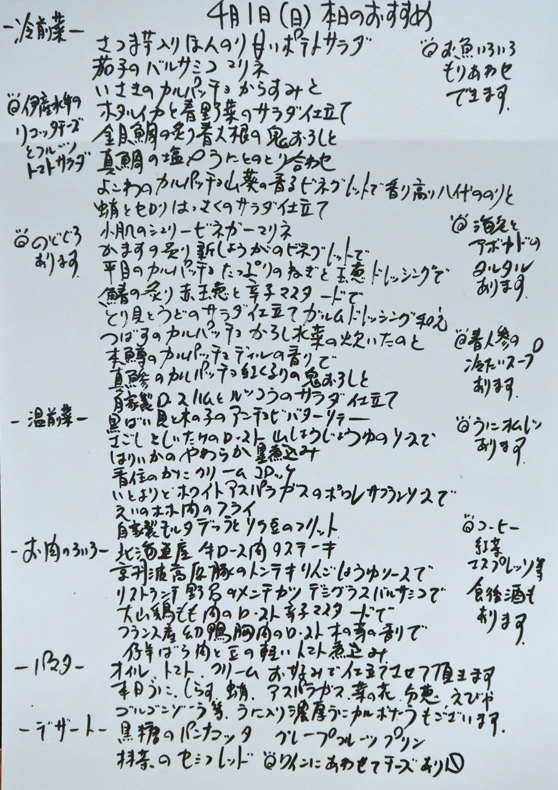 4月1日(日) 本日のおすすめ
-冷前菜-
さつま芋入りほんのり甘いポテトサラダ
茄子のバルサミコマリネ
いさきのカルパッチョ からすみと
ホタルイカと春野菜のサラダ仕立て
金目鯛の炙り 春大根の鬼おろしと
真鯛の塩〆 うにとのとり合わせ
よこわのカルパッチョ 山葵の香るビネグレットで 香り高い八代ののりと
蛸とセロリ はっさくのサラダ仕立て
小肌のシェリービネガーマリネ
かますの炙り 新しょうがのビネグレットで
平目のカルパッチョ たっぷりのねぎと玉葱ドレッシングで
鯖の炙り 赤玉葱と辛子マスタードで
とり貝とうどのサラダ仕立て ガルムドレッシング和え
つばすのカルパッチョ からし水菜の炊いたのと
本鱒のカルパッチョ ディルの香りで
真鯵のカルパッチョ 紅くるりの鬼おろしと
自家製ロースハムとルッコラのサラダ仕立て
お魚いろいろ
もりあわせ
できます。
伊産水牛の
リコッタチーズ
とフルーツ
トマトサラダ
のどぐろ
あります
海老と
アボカドの
タルタル
あります。
春人参の
冷たいスープ
あります。
うにオムレツ
あります。
-温前菜-
黒ばい貝と木の子のアンチョビバターソテー
さごしとしいたけのロースト 山しょうじょうゆのソースで
はりいかのやわらか墨煮込み
香住のかにクリームコロッケ
いとよりとホワイトアスパラガスのポワレ サフランソースで
えいのホホ肉のフライ
自家製モルタデッラとソラ豆のフリット
-お肉のいろいろ-
北海道産 牛ロース肉のステーキ
京丹波高原豚のトンテキ りんごじょうゆソースで
リストランテ野呂のメンチカツ デミグラスバルサミコで
大山鶏もも肉のロースト 辛子マスタードで
フランス産幼鴨胸肉のロースト 木の芽の香りで
仔羊ばら肉と豆の軽いトマト煮込み
コーヒー
紅茶
エスプレッソ等
食後酒も
あります。
-パスタ-
オイル、トマト、クリーム お好みで仕立てさせて頂きます
本日うに、しらす、蛸、アスパラガス、菜の花、分葱、えびや
ゴルゴンゾーラ等、うに入り濃厚うにカルボナーラもございます。
-デザート-
黒糖のパンナコッタ グレープフルーツプリン
抹茶のセミフレッド ワインにあわせてチーズあり〼